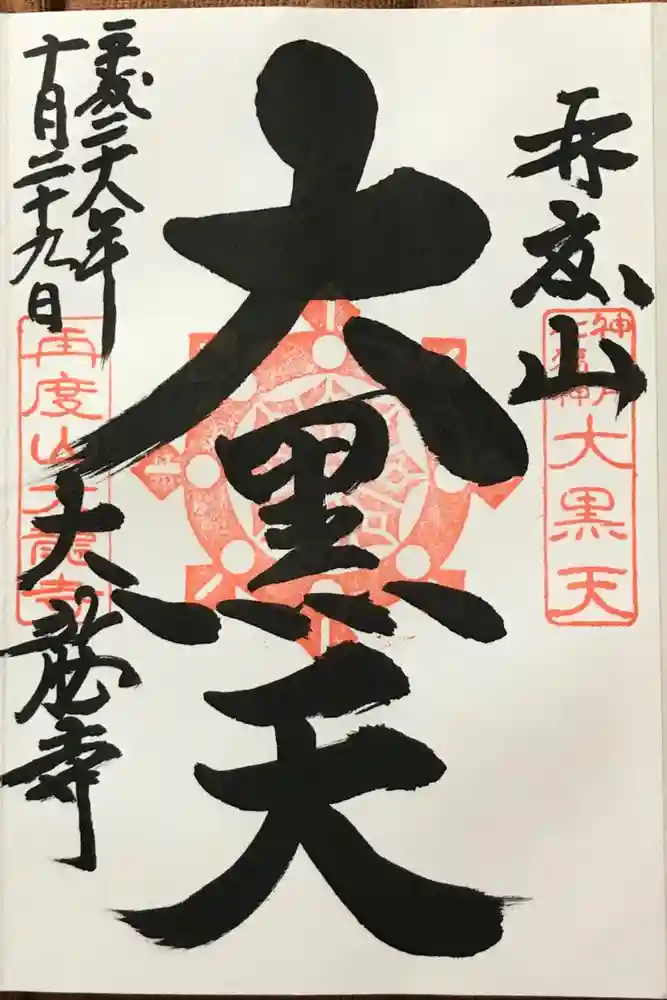 再度山
神戸七福神
大黒天
大黒天
平成二十八年
十月二十九日
再度山大龍寺
大龍寺